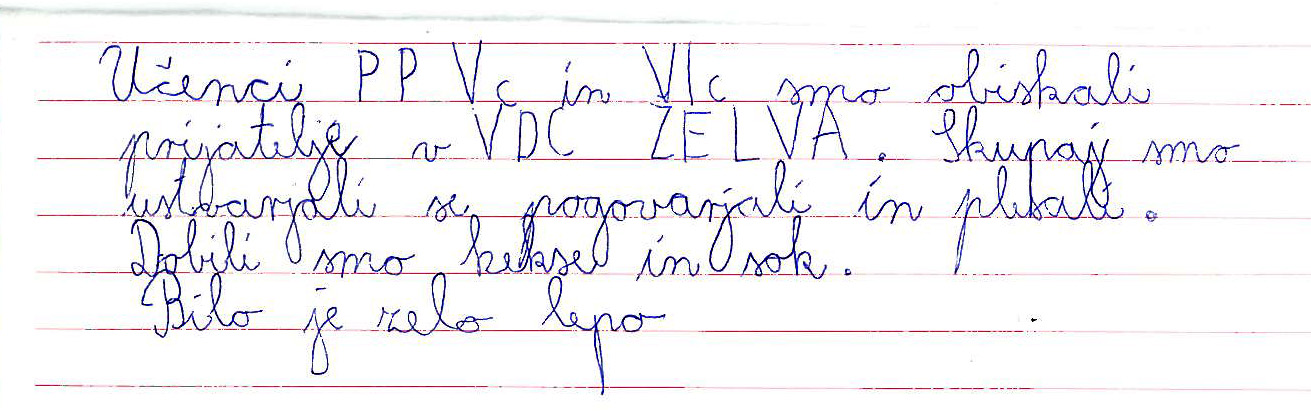 Učenci PP Vc in VIc smo obiskali
prijatelje v VDC ŽELVA. Skupaj smo
ustvarjali se pogovarjali in plesali.
Dobili smo kekse in sok.
Bilo je zelo lepo